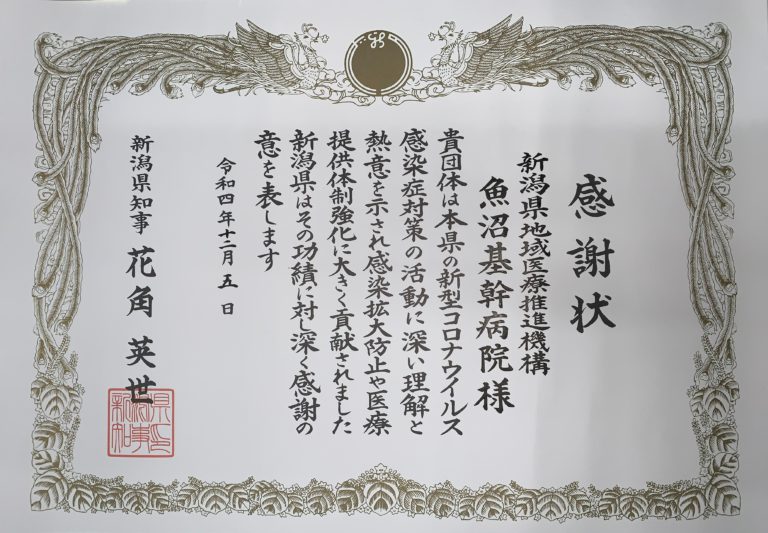 感謝状
新潟県地域医療推進機構
魚沼基幹病院様
貴団体は本県の新型コロナウイルス
感染症対策の活動に深い理解と
熱意を示され感染拡大防止や医療
提供体制強化に大きく貢献されました
新潟県はその功績に対し深く感謝の
意を表します
令和四年十二月五日
新潟県知事 花角英世
新潟県知事之印